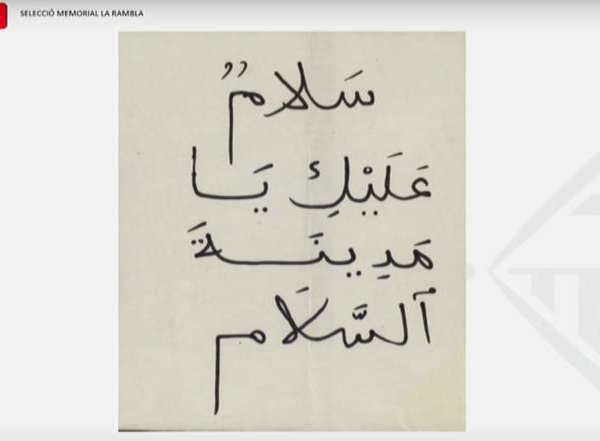 SELECCIÓ MEMORIAL LA RAMBLA
سَلامٌ
عَلَيْكِ يَا
مَدِينَةَ
ٱلسَّلَام